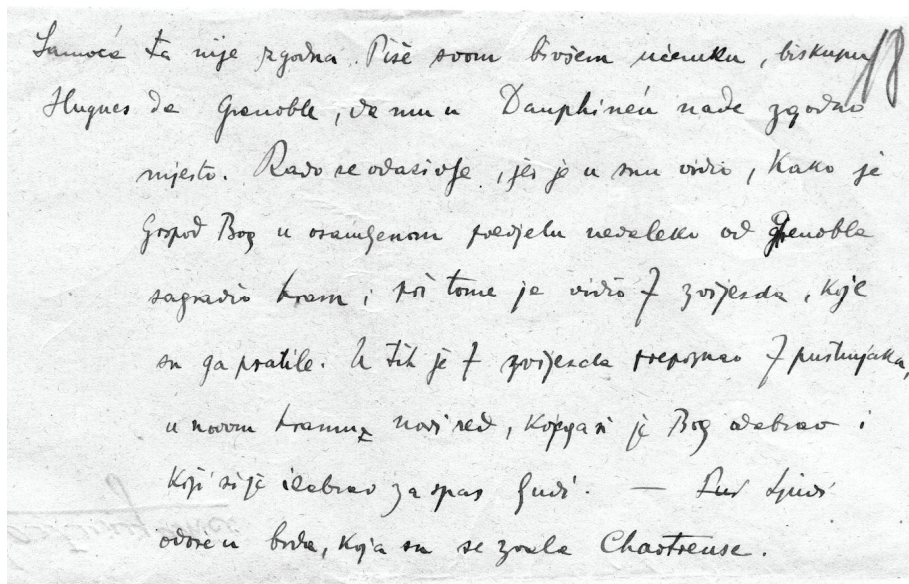 Samoća ta nije zgodna. Piše svom bivšem učeniku, biskupu 18
Hugues de Grenoble, da mu u Dauphinéu nađe zgodno
mjesto. Rado se odazivlje, jer je u snu vidio, kako je
Gospod Bog u osamljenom predjelu nedaleko od Grenobla
sagradio hram i pri tome je vidio 7 zvijezda, koje
su ga pratile. U tih je 7 zvijezda prepoznao 7 pustinjaka,
u novom hramu novi red, kojega si je Bog odabrao i
koji si je izabrao za spas ljudi. — Ljudi
odoše u brda, koja su se zvala Chartreuse.